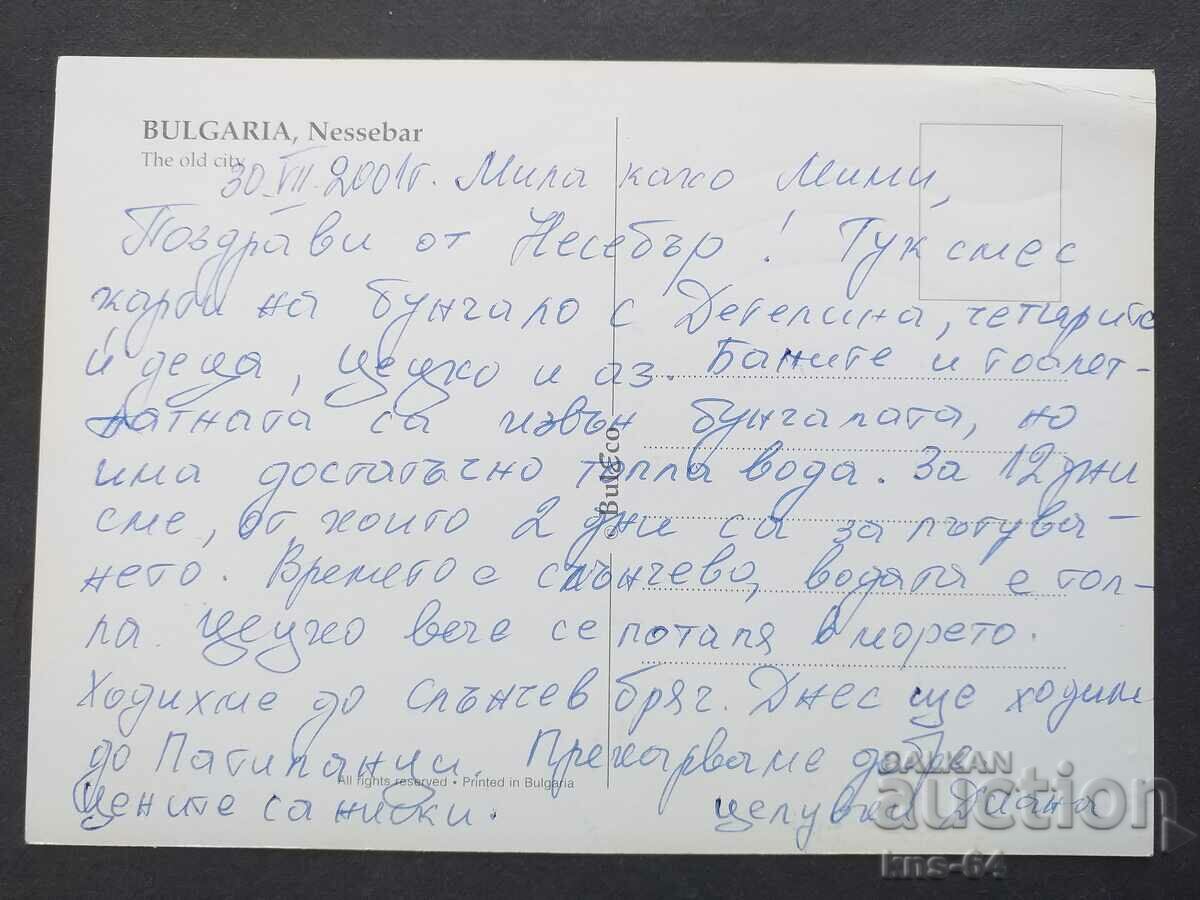 BULGARIA, Nessebar
The old city
30.VII.2001г. Мила како Мими,
Поздрави от Несебър! Тук сме с
на бунгало с Детелина, четирите
ѝ деца, Цецко и аз. Баните и тоалет-
ната са извън бунгалата, но
има достатъчно топла вода. За 12 дни
сме, от които 2 дни са за пътува-
нето. Времето е слънчево, водата е топ-
ла. Цецко вече се потапя в морето.
Ходихме до Слънчев бряг. Днес ще ходим
до Патиланци. Прекарваме добре.
Цените са ниски. целувки Диана
© BulEco
All rights reserved • Printed in Bulgaria
BALKAN
auction
kns-64